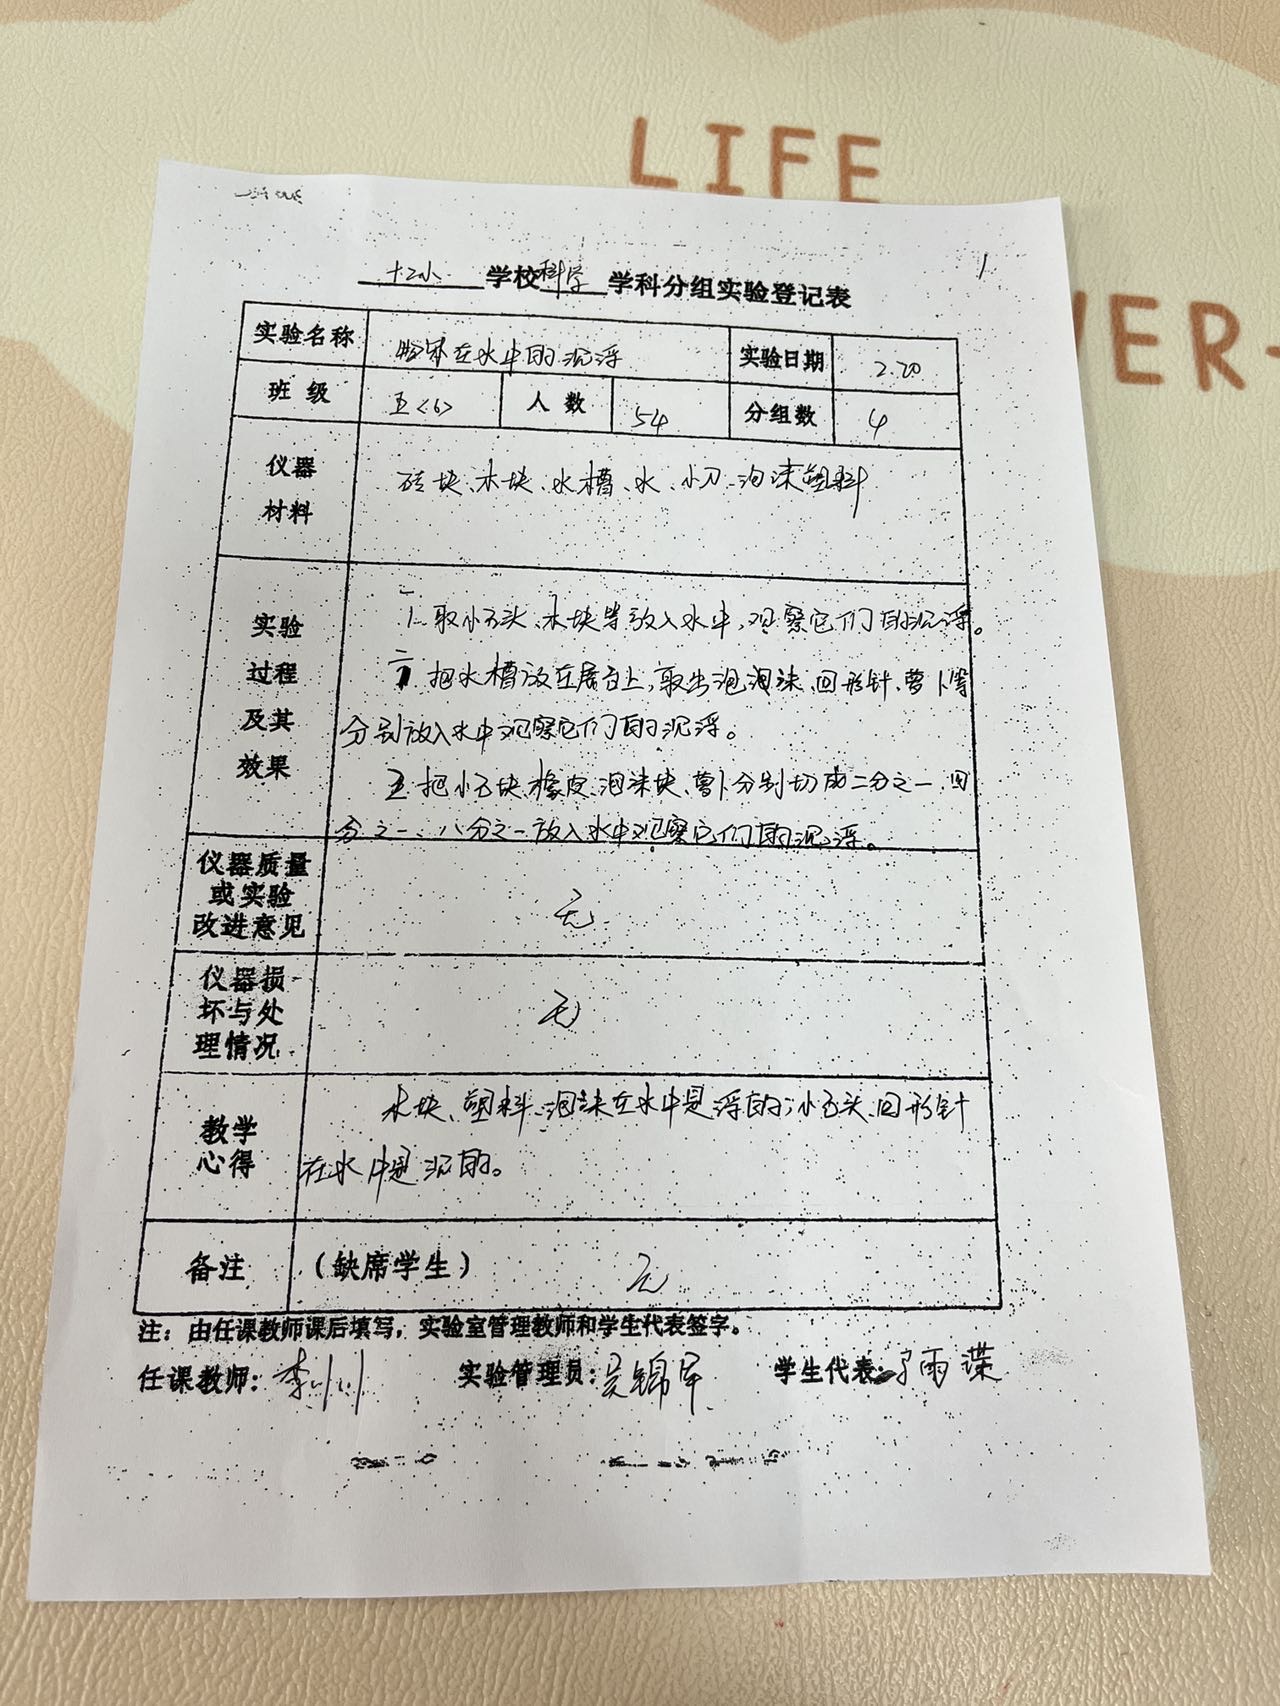 LIFE
VER
1
十二小 学校科学 学科分组实验登记表
实验名称 物体在水中的沉浮 实验日期 2.20
班 级 五<6> 人 数 54 分组数 4
仪器
材料
砖块、木块、水槽、水、小刀、泡沫塑料
实验
过程
及其
效果
1. 取小石头、木块等放入水中,观察它们的沉浮。
把水槽放在展台上,取出泡泡沫、回形针、萝卜等
分别放入水中观察它们的沉浮。
把小石块、橡皮、泡沫块、萝卜分别切成二分之一、四
分之一、八分之一放入水中观察它们的沉浮。
仪器质量
或实验
改进意见
无
仪器损
坏与处
理情况
无
教学
心得
木块、塑料、泡沫在水中是浮的;小石头、回形针
在水中是沉的。
备注 (缺席学生) 无
注:由任课教师课后填写,实验室管理教师和学生代表签字。
任课教师:李川川 实验管理员:吴锦军 学生代表: 雨